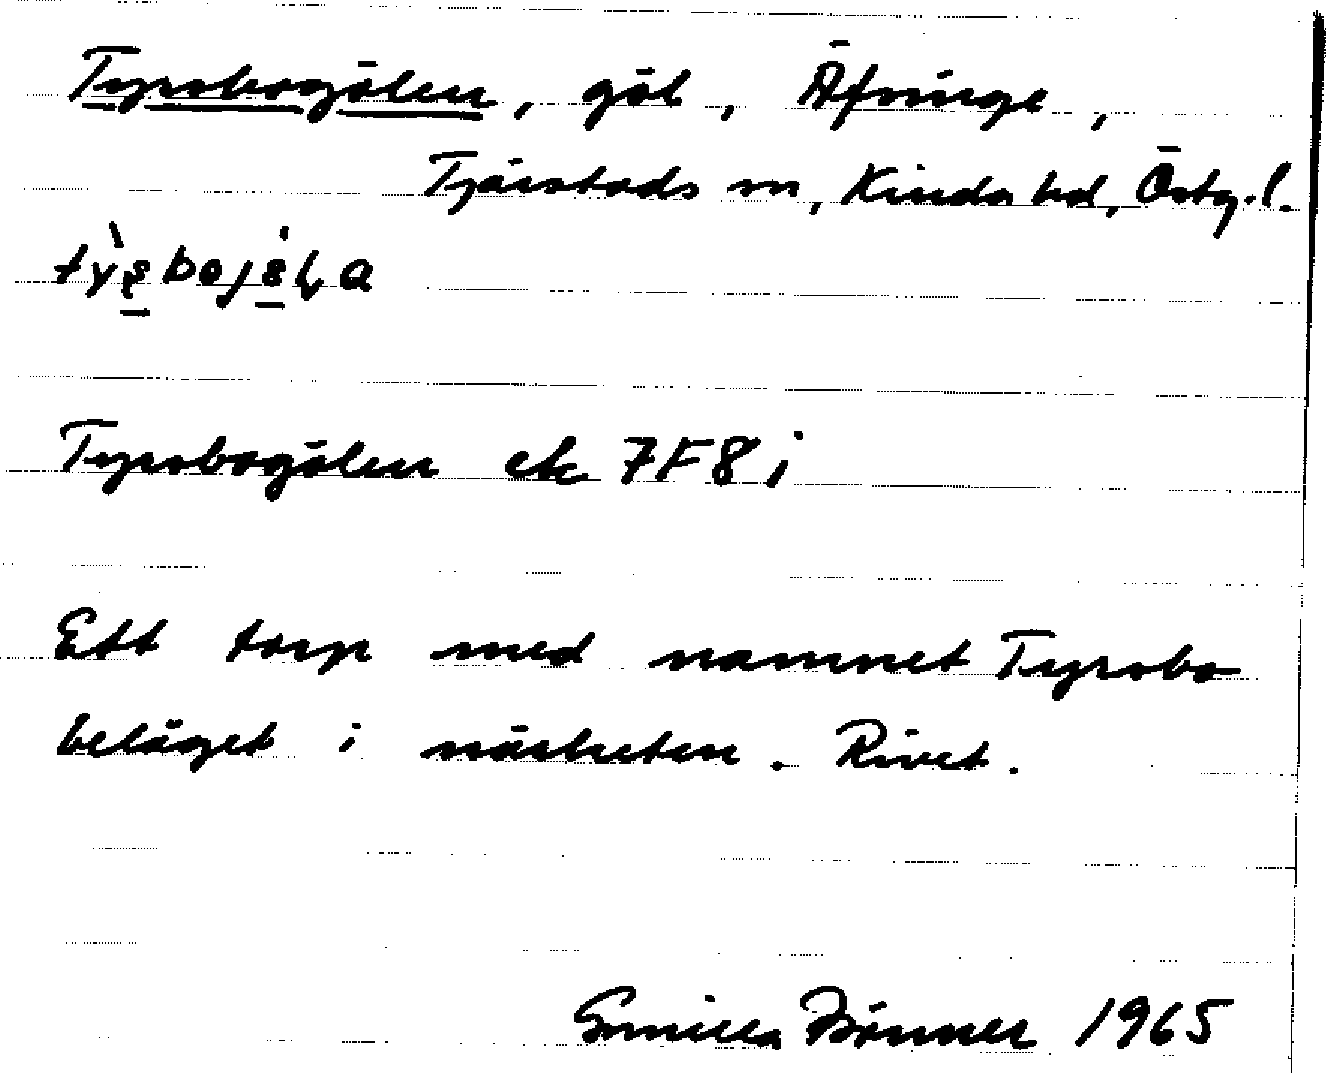 Tyrsbogölen, göl, Äfninge,
Tjärstads sn, Kinda hd, Östg.l.
Tyrsbogölen ek 7F8i
Ett torp med namnet Tyrsbo
beläget i närheten. Rivet.
Gunilla 1965